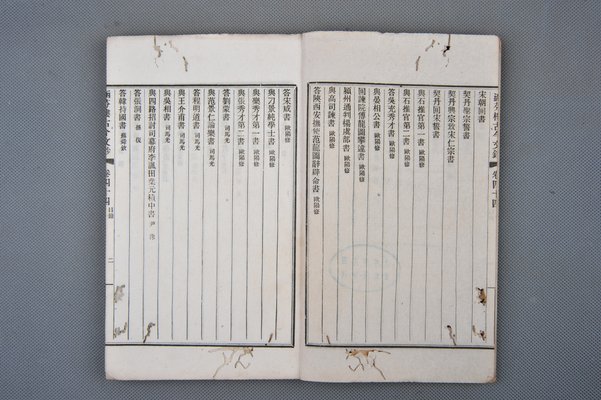 卷四十四
宋朝回書
契丹聖宗誓書
契丹回宋誓書
契丹興宗致宋仁宗書
與石推官第一書 歐陽修
與石推官第二書 歐陽修
與晏相公書 歐陽修
答吳充秀才書 歐陽修
回諫院傅龍圖攀違書 歐陽修
福州通判楊虞部書 歐陽修
與高司諫書 歐陽修
答陝西安撫使范龍圖辭辟命書 歐陽修
答宋咸書 歐陽修
與刁景純學士書 歐陽修
與樂秀才第一書 歐陽修
與張秀才第二書 歐陽修
答劉蒙書 司馬光
與范景仁論樂書 司馬光
答程明道書 司馬光
與王介甫書 司馬光
與吳相書 司馬光
與四路招討司幕府李諷田棐元積中書 尹洙
答張洞書 孫復
答韓持國書 蘇舜欽
卷四十四 目錄 二